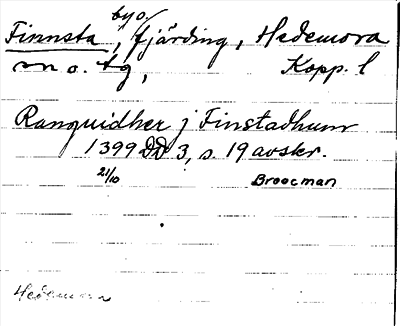 by o
Finnsta, fjärding, Hedemora
sn o. tg, Kopp. l
Ranguidher j Finstadhum
1399 DD 3, s. 19 avskr.
21/10 Broocman
Hedemora